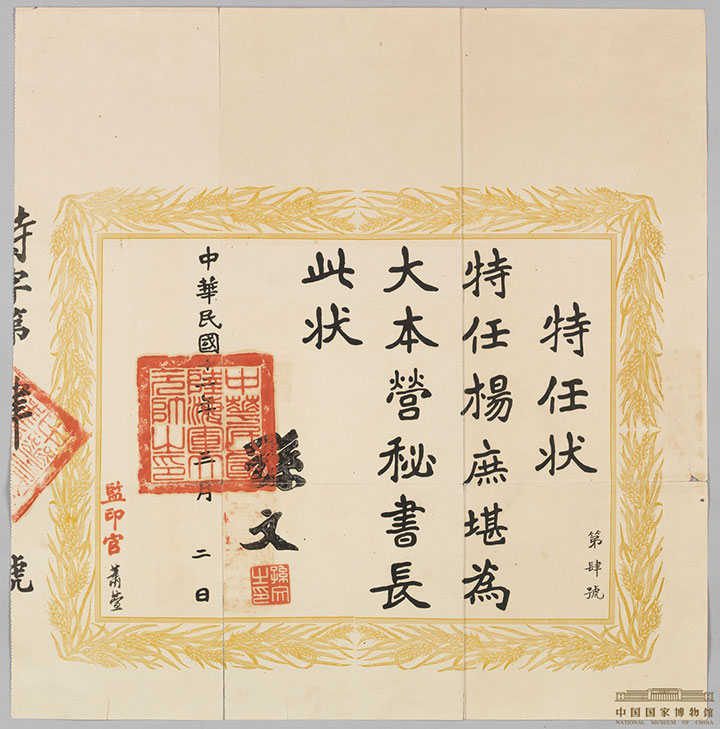 第肆號
特任状
特任楊庶堪為
大本營秘書長
此状
孫文
孫文之印
中華民國十二年三月二日
中華民國陸海軍大元帥之印
監印官 蕭萱
特字第肆號
中国国家博物馆
NATIONAL MUSEUM OF CHINA